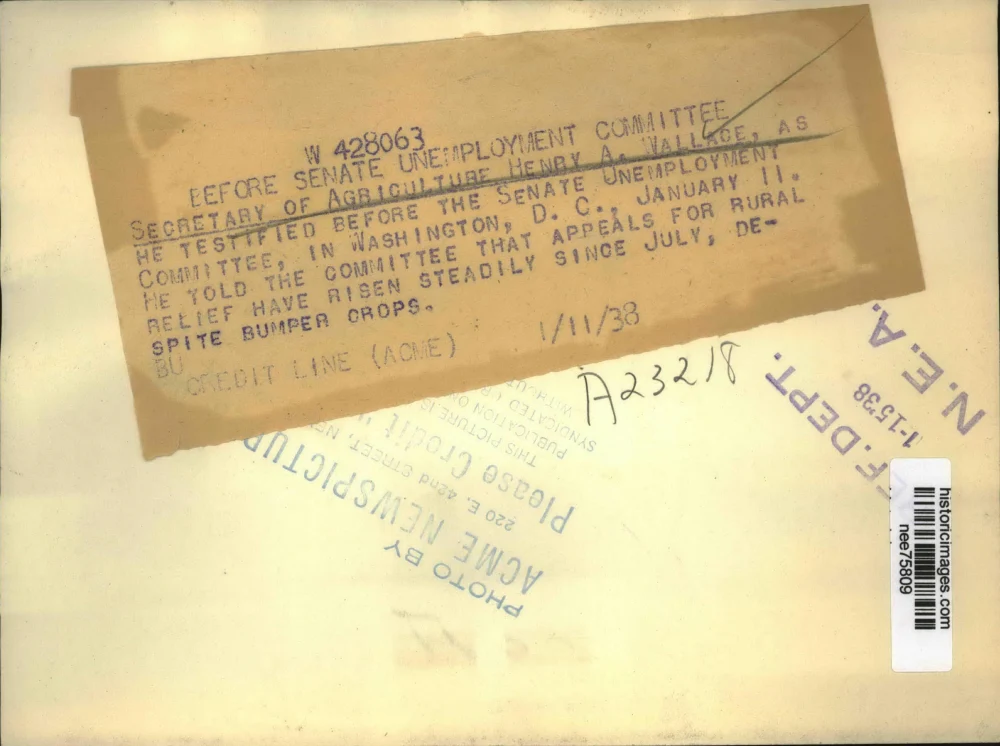 W 428063
BEFORE SENATE UNEMPLOYMENT COMMITTEE
SECRETARY OF AGRICULTURE HENRY A. WALLACE, AS
HE TESTIFIED BEFORE THE SENATE UNEMPLOYMENT
COMMITTEE, IN WASHINGTON, D. C., JANUARY 11.
HE TOLD THE COMMITTEE THAT APPEALS FOR RURAL
RELIEF HAVE RISEN STEADILY SINCE JULY, DE-
SPITE BUMPER CROPS.
BU
CREDIT LINE (ACME)
1/11/38
A23218
PHOTO BY
ACME NEWSPICTUR
220 E. 42nd STREET, NE
Please Credit
THIS PICTURE IS
PUBLICATION ON
SYNDICATED OR
WITHOUT
N. E. A.
1-15'38
EF. DEPT.
historicimages.com
nee75809